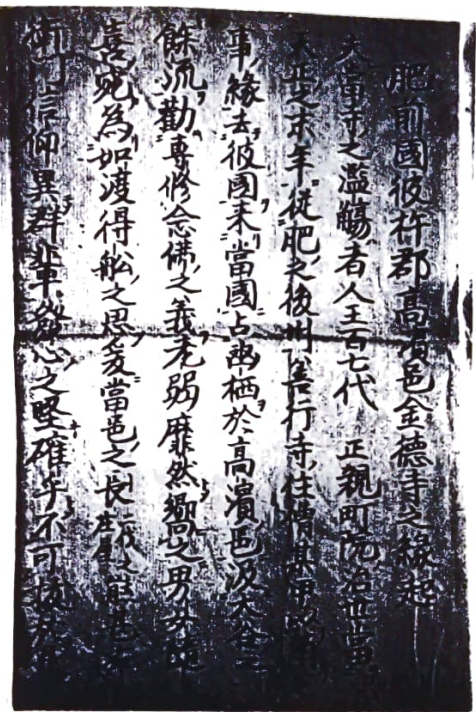 肥前國彼杵郡高濱邑金德寺之緣起
夫當寺之濫觴者人王百七代 正親町院治世當
天正之末年從肥之後州善行寺住僧某師
事緣去彼國来當國占幽栖於高濱邑汲大谷之
餘流勸専修念佛之義老弱靡然嚮之男女随
喜宛為如渡得舩之思爰當邑之長
衛門信仰異群輩發心之堅確乎不可拔